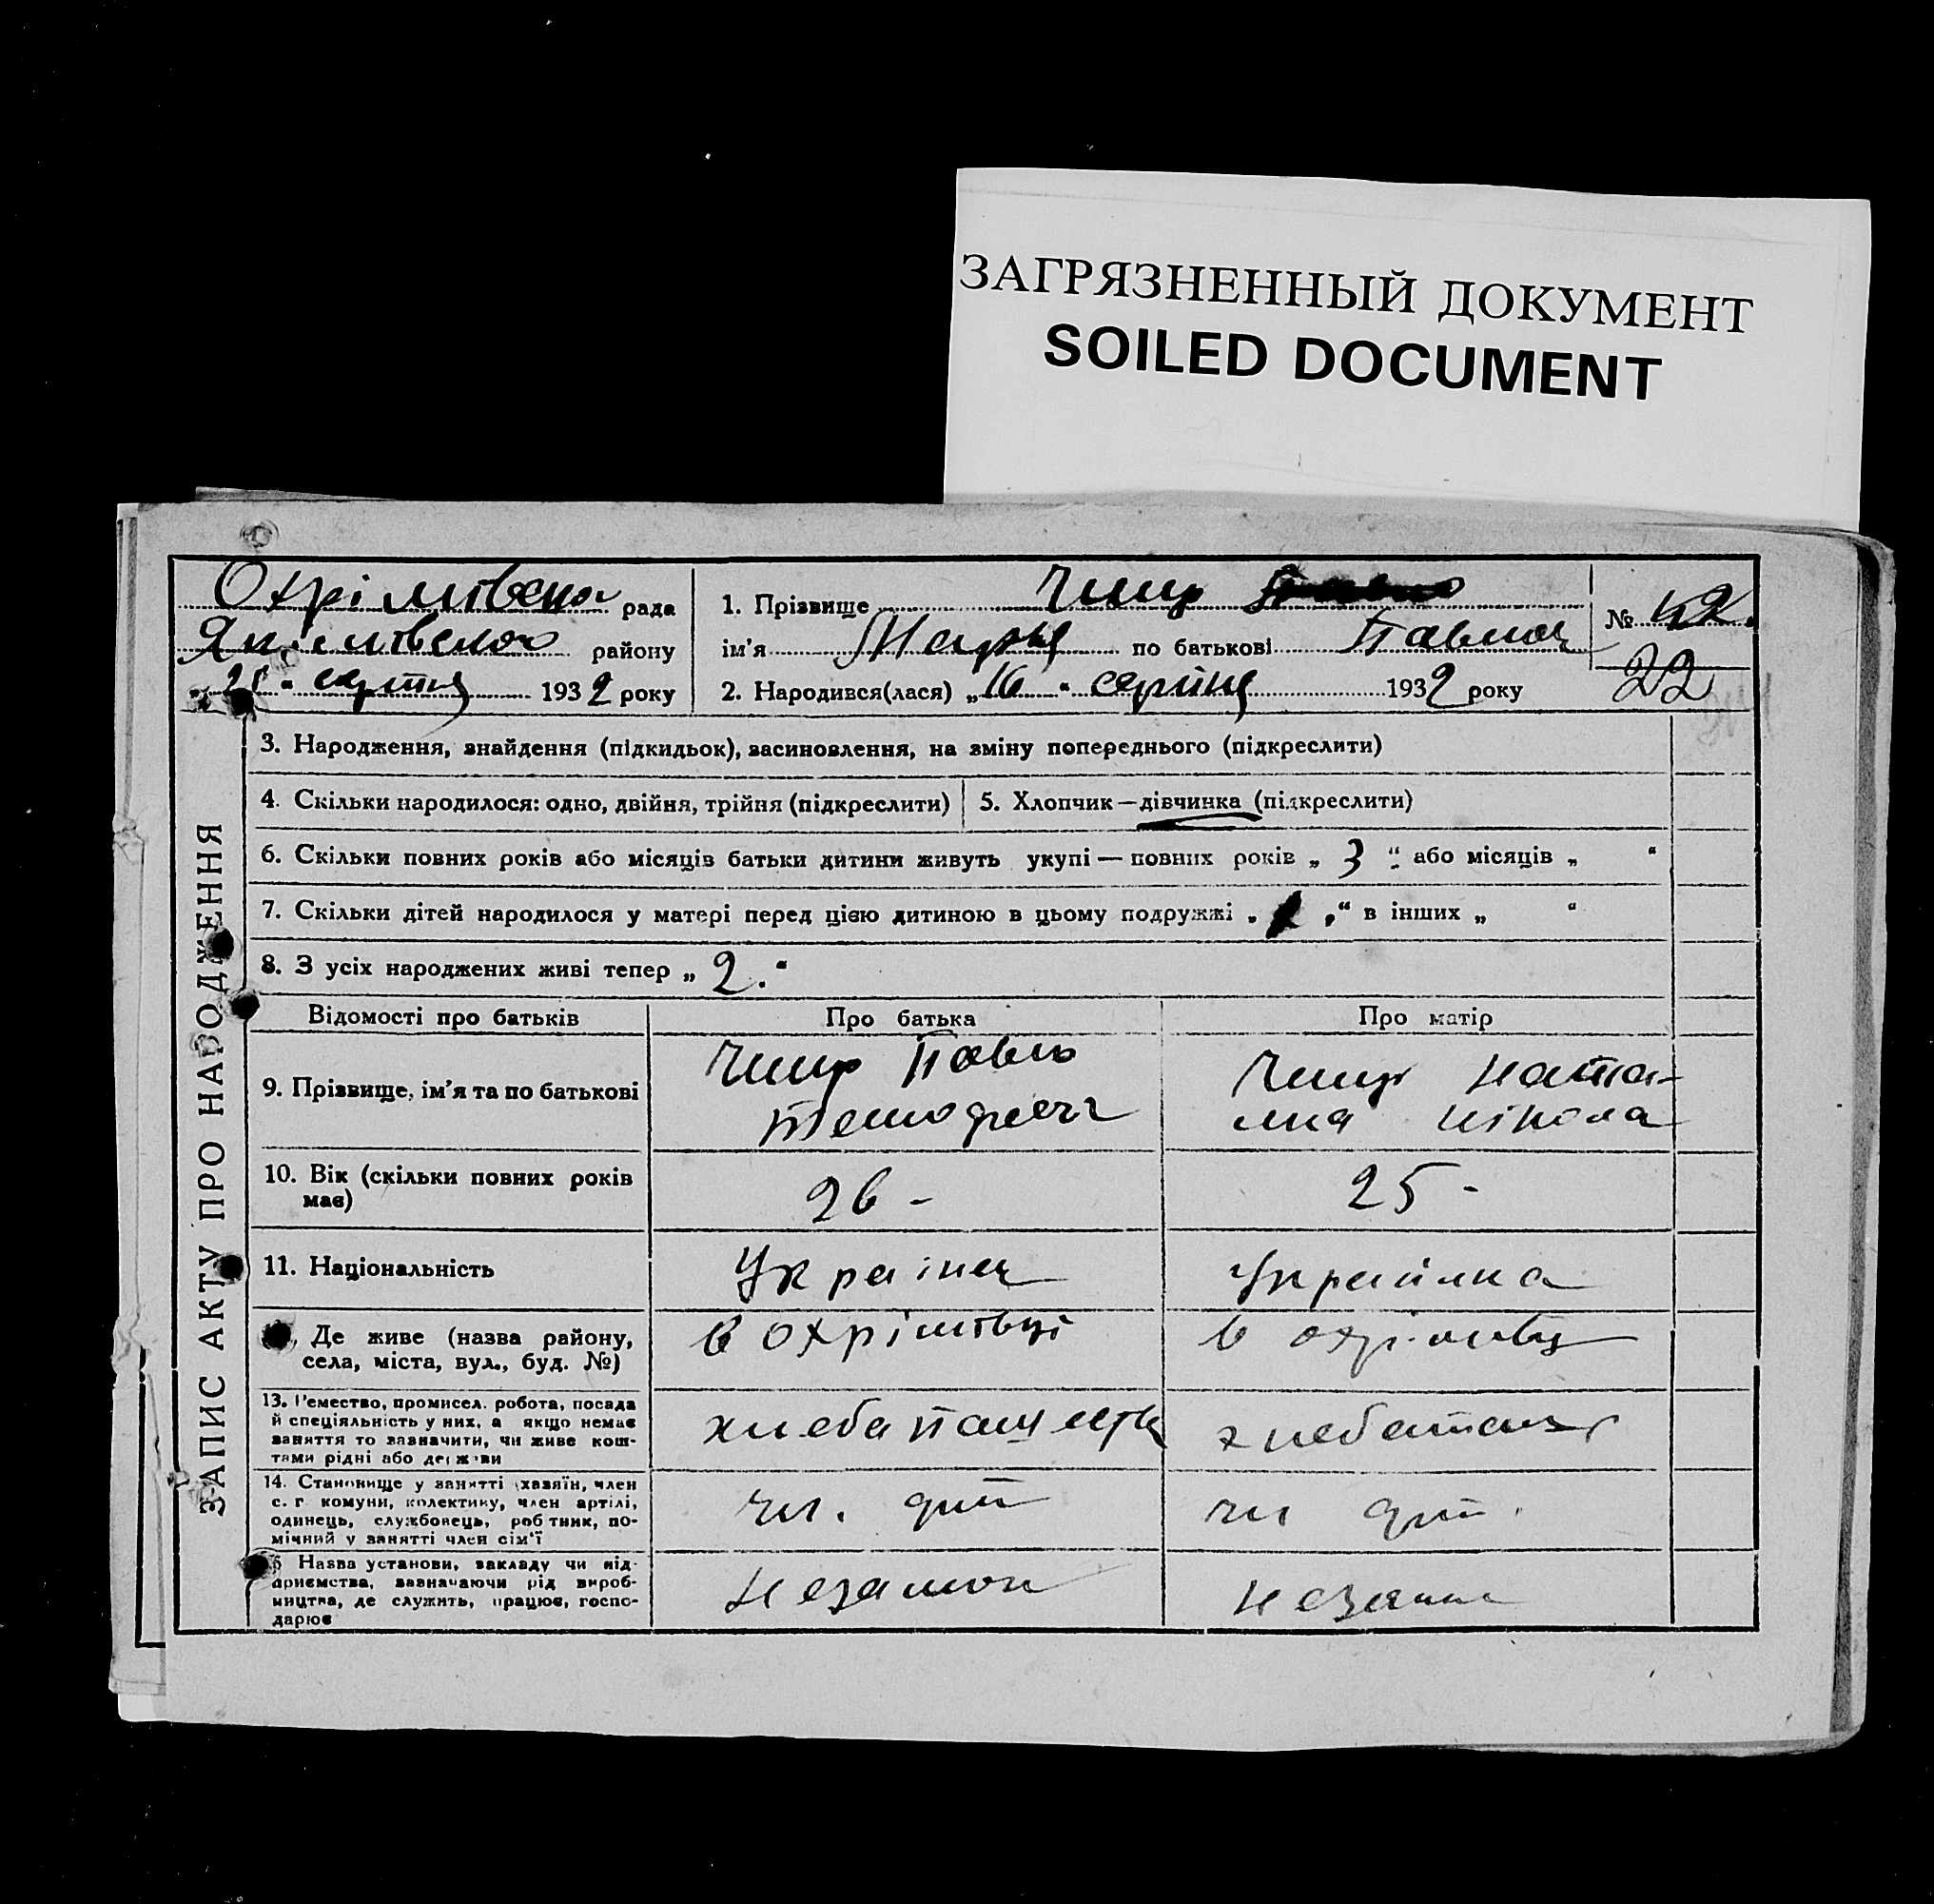 ЗАГРЯЗНЕННЫЙ ДОКУМЕНТ
SOILED DOCUMENT
ЗАПИС АКТУ ПРО НАРОДЖЕННЯ
Охрімівська рада
району
серпня 1932 року
1. Прізвище
ім'я Марія по батькові Павлов
2. Народився(лася) „16" серпня 1932 року
№ 42.
22
3. Народження, знайдення (підкидьок), засиновлення, на зміну попереднього (підкреслити)
4. Скільки народилося: одно, двійня, трійня (підкреслити)
5. Хлопчик — дівчинка (підкреслити)
6. Скільки повних років або місяців батьки дитини живуть укупі — повних років „ 3 " або місяців „ "
7. Скільки дітей народилося у матері перед цією дитиною в цьому подружжі „ " в інших „ "
8. З усіх народжених живі тепер „ 2. "
Відомості про батьків
Про батька
Про матір
9. Прізвище, ім'я та по батькові
Павло
Ната-
лия
10. Вік (скільки повних років
має)
26 -
25 -
11. Національність
Українец
Українка
Де живе (назва району,
села, міста, вул., буд. №)
в Охрімівці
в Охрімівці
13. Ремество, промисел, робота, посада
й спеціяльність у них, а якщо немає
заняття то зазначити, чи живе кош-
тами рідні або держави
14. Становище у занятті (хазяїн, член
с. г. комуни, колективу, член артілі,
одинець, службовець, робітник, по-
мічний у занятті член сім'ї
чл.
чл
15 Назва установи, закладу чи під-
приємства, зазначаючи рід вироб-
ництва, де служить, працює, госпо-
дарює
незамож